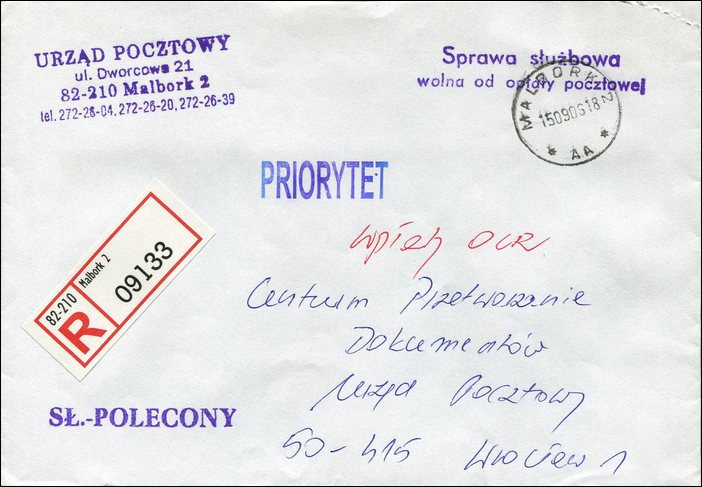 URZĄD POCZTOWY
ul. Dworcowa 21
82-210 Malbork 2
tel. 272-26-04, 272-26-20, 272-26-39
Sprawa służbowa
wolna od opłaty pocztowej
MALBORK 2
150906182
* AA *
PRIORYTET
82-210 Malbork 2
R 09133
OCR
Centrum Przetwarzanie
Dokumentów
Urząd Pocztowy
SŁ.-POLECONY
50-415 Wrocław 1